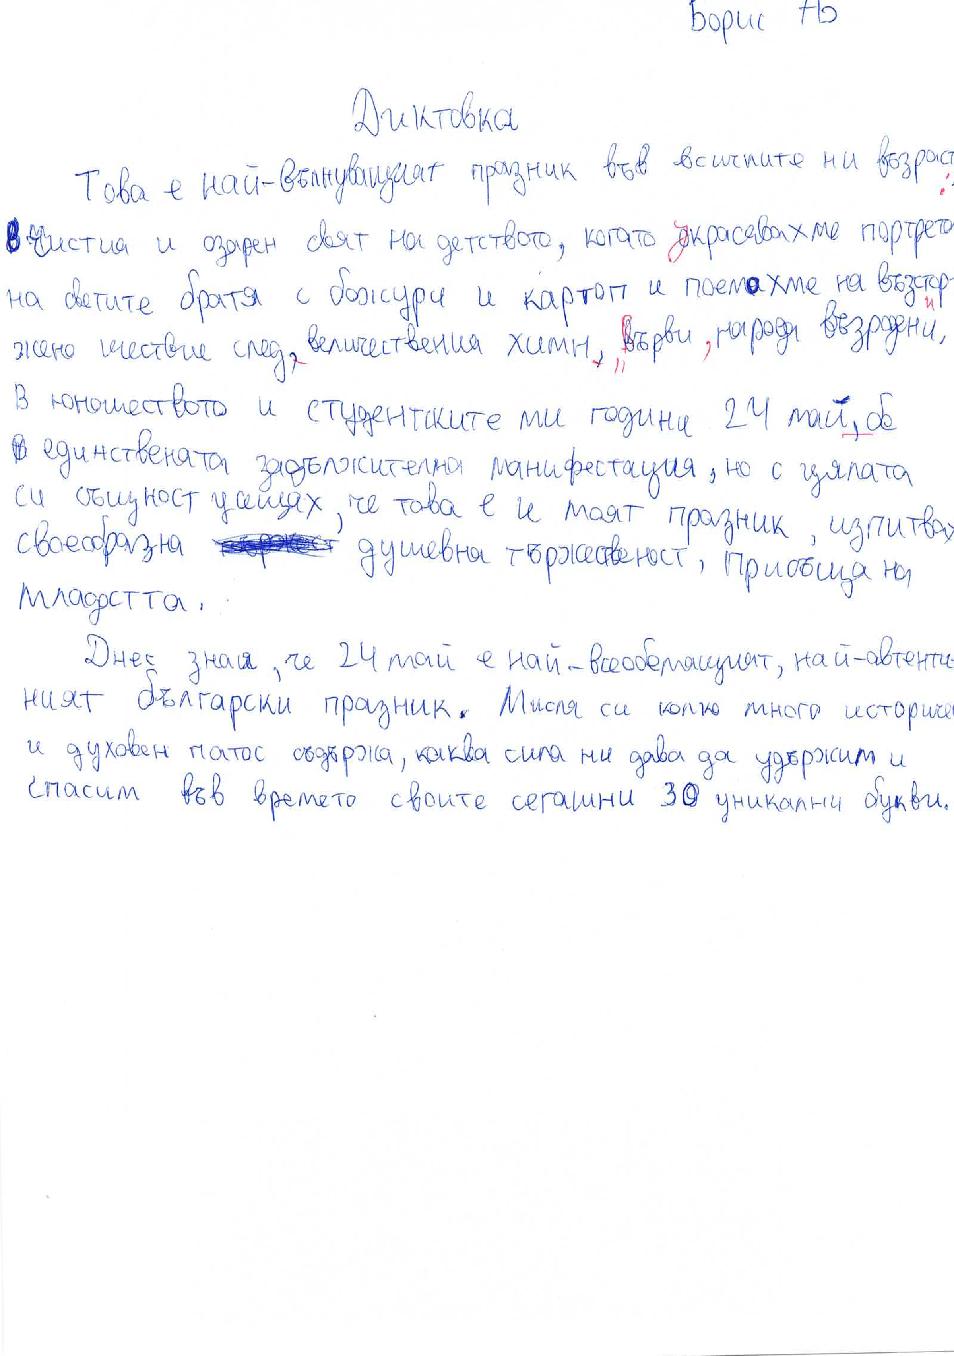 Борис Аь
Диктовка
Това е най-вълнуващият празник във всичките ни възраст
В чистия и озарен свят на детството, когато украсявахме портрета
на светите братя с божури и картоп и поемахме на възтор-
жено шествие след, величествения химн, „Върви, народе възродени,
В юношеството и студентските ми години 24 май, бе
единствената задължителна манифестация, но с цялата
си същност усещах, че това е и моят празник, изпитвах
своеобразна душевна тържественост, Приобща на
младостта.
Днес зная, че 24 май е най-всеобемащият, най-автенти
ният български празник. Мисля си колко много историче
и духовен патос съдържа, каква сила ни дава да удържим и
спасим във времето своите сегашни 30 уникални букви.